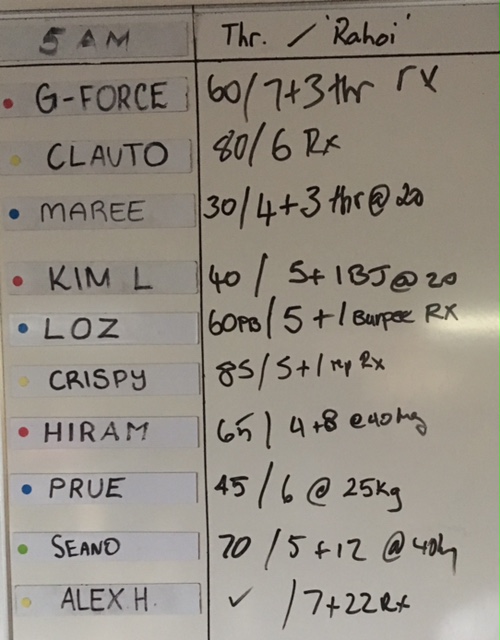 5 AM Thr. / 'Rahoi'
G-FORCE 60/7+3 thr rx
CLAUTO 80/6 Rx
MAREE 30/4+3 thr@20
KIM L 40 / 5+1BJ@20
LOZ 60PB/5+1 Burpee RX
CRISPY 85/5+1 rep Rx
HIRAM 65/ 4+8 @40kg
PRUE 45/6 @ 25kg
SEANO 70 /5+12 @40kg
ALEX H. ✓ /7+22Rx